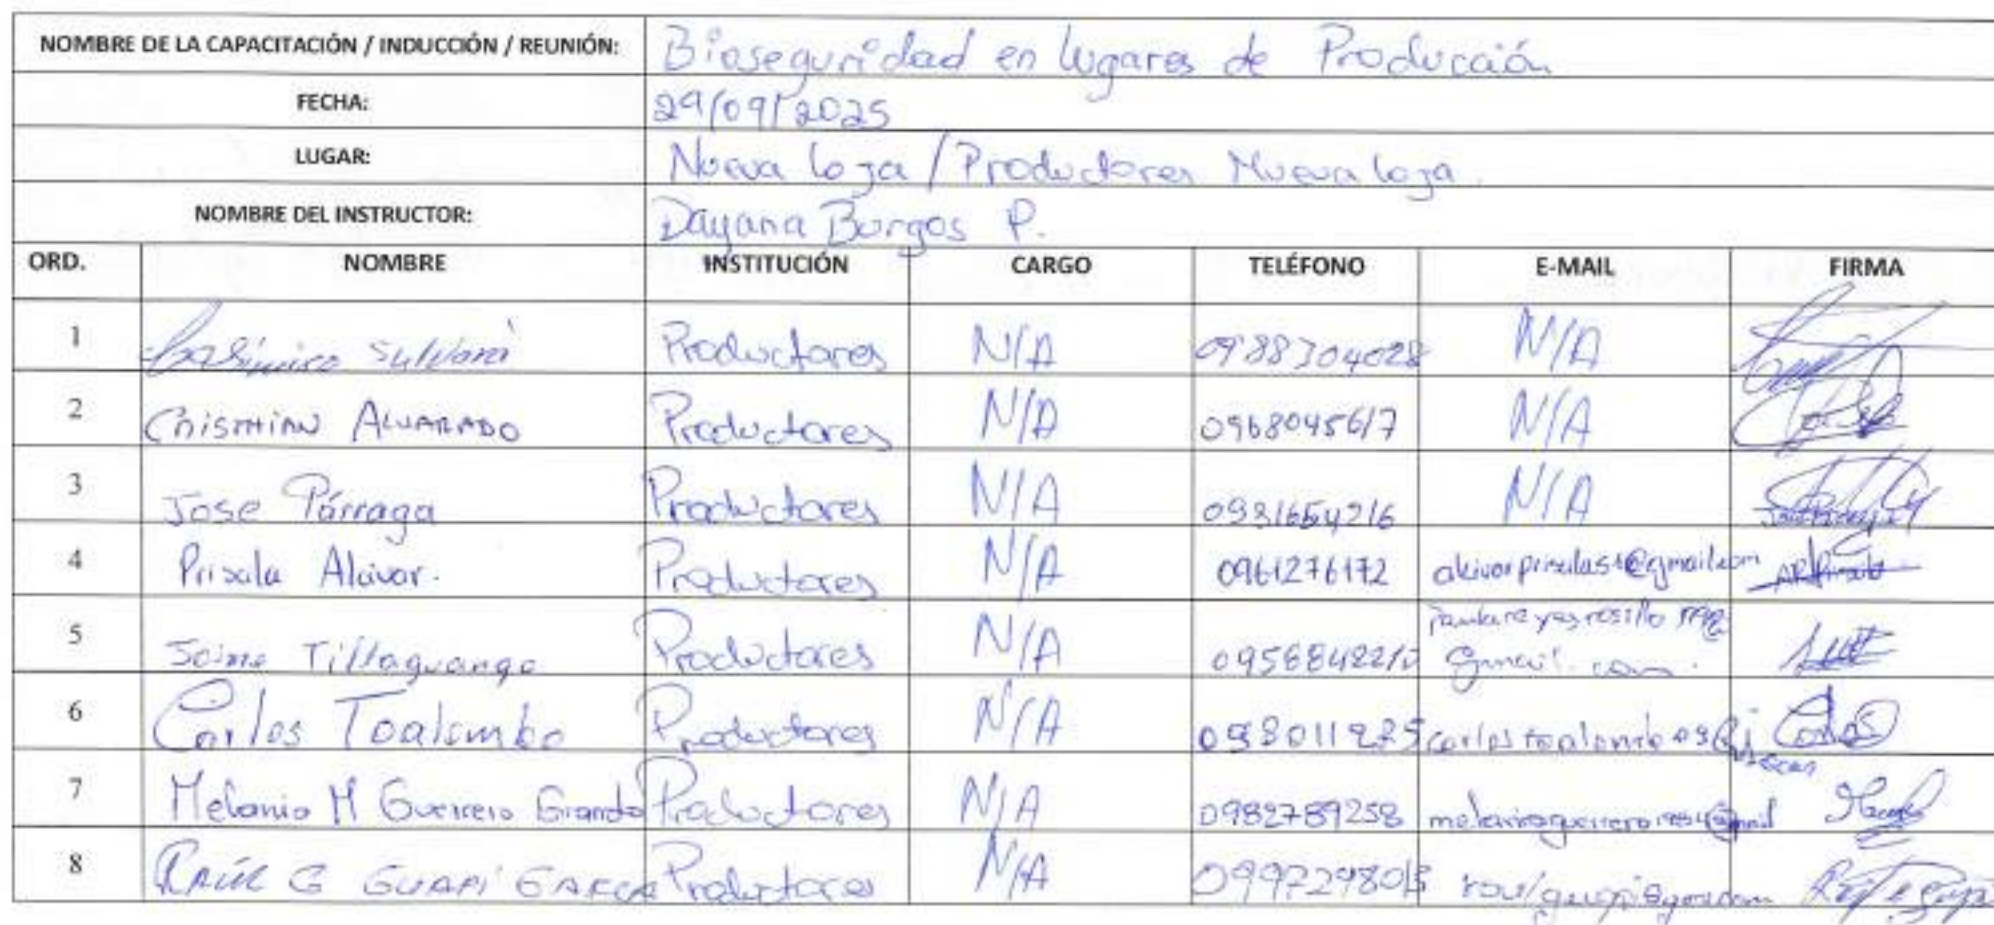 NOMBRE DE LA CAPACITACIÓN / INDUCCIÓN / REUNIÓN: Bioseguridad en lugares de Producción
FECHA: 29/09/2025
LUGAR: Nueva loja / Productores Nueva loja.
NOMBRE DEL INSTRUCTOR: Dayana Burgos P.
ORD. NOMBRE INSTITUCIÓN CARGO TELÉFONO E-MAIL FIRMA
1 Productores N/A 0988304028 N/A
2 Cristhian Alvarado Productores N/A 0968045617 N/A
3 Jose Párraga Productores N/A 0981654216 N/A
4 Priscila Alcivar. Productores N/A 0961276172
5 Jaime Tillaguango Productores N/A
gmail.com.
6 Carlos Toalombo Productores N/A Carlos
7 Melania M Guerrero Granda Productores N/A 0982789258
8 RAÚL G GUAPI GARCIA Productores N/A